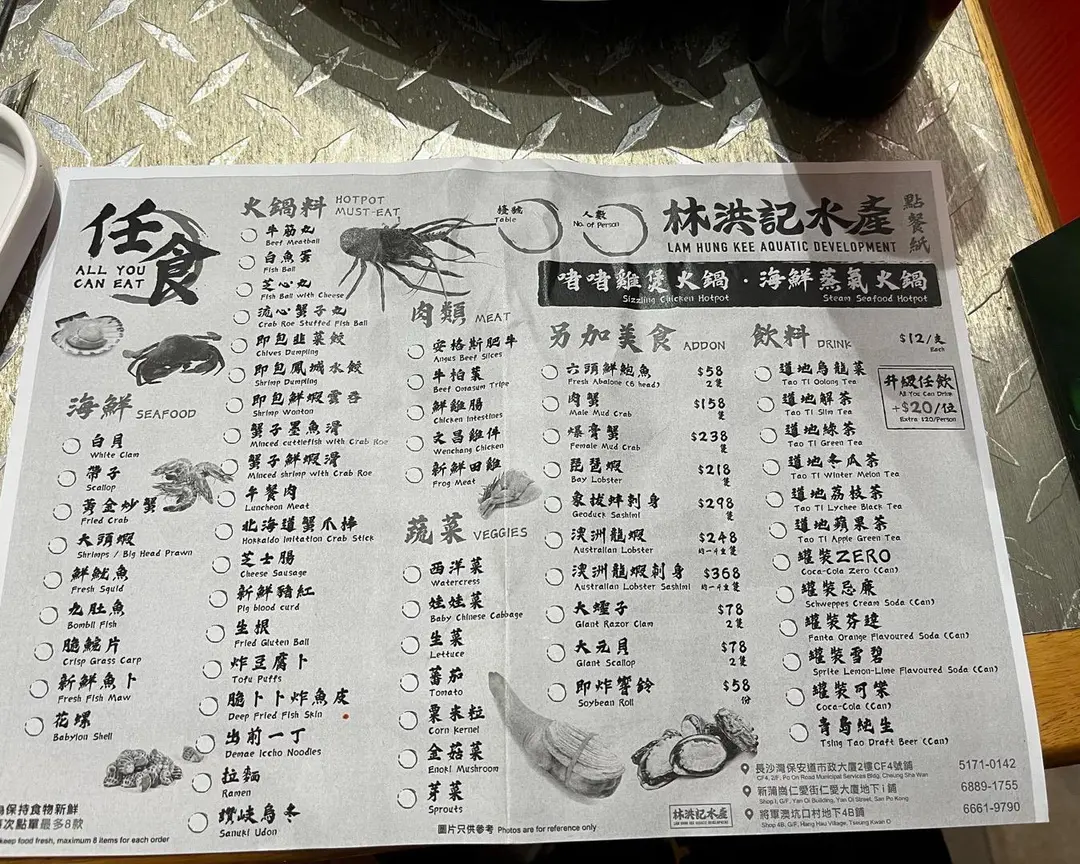 任食
ALL YOU
CAN EAT
火鍋料 HOTPOT
MUST-EAT
牛筋丸
Beef Meatball
白魚蛋
Fish Ball
芝心丸
Fish Ball with Cheese
流心蟹子丸
Crab Roe Stuffed Fish Ball
即包韭菜餃
Chives Dumpling
即包鳳城水餃
Shrimp Dumpling
即包鮮蝦雲吞
Shrimp Wonton
蟹子墨魚滑
Minced cuttlefish with Crab Roe
蟹子鮮蝦滑
Minced shrimp with Crab Roe
午餐肉
Luncheon Meat
北海道蟹爪棒
Hokkaido Imitation Crab Stick
芝士腸
Cheese Sausage
新鮮豬紅
Pig blood curd
生根
Fried Gluten Ball
炸豆腐卜
Tofu Puffs
脆卜卜炸魚皮
Deep Fried Fish Skin
出前一丁
Demae Iccho Noodles
拉麵
Ramen
讚岐烏冬
Sanuki Udon
海鮮 SEAFOOD
白貝
White Clam
帶子
Scallop
黃金炒蟹
Fried Crab
大頭蝦
Shrimps / Big Head Prawn
鮮魷魚
Fresh Squid
九肚魚
Bombil Fish
脆鯇片
Crisp Grass Carp
新鮮魚卜
Fresh Fish Maw
花螺
Babylon Shell
為保持食物新鮮
每次點單最多8款
keep food fresh, maximum 8 items for each order
肉類 MEAT
安格斯肥牛
Angus Beef Slices
牛柏葉
Beef Omasum Tripe
鮮雞腸
Chicken Intestines
文昌雞件
Wenchang Chicken
新鮮田雞
Frog Meat
蔬菜 VEGGIES
西洋菜
Watercress
娃娃菜
Baby Chinese Cabbage
生菜
Lettuce
蕃茄
Tomato
粟米粒
Corn Kernel
金菇菜
Enoki Mushroom
芽菜
Sprouts
圖片只供參考 Photos are for reference only
檯號
Table
人數
No. of Person
林洪記水產
LAM HUNG KEE AQUATIC DEVELOPMENT
點餐紙
啫啫雞煲火鍋・海鮮蒸氣火鍋
Sizzling Chicken Hotpot Steam Seafood Hotpot
另加美食 ADDON
六頭鮮鮑魚 $58
Fresh Abalone (6 head) 2隻
肉蟹 $158
Male Mud Crab 隻
爆膏蟹 $238
Female Mud Crab 隻
琵琶蝦 $218
Bay Lobster 隻
象拔蚌刺身 $298
Geoduck Sashimi 隻
澳洲龍蝦 $248
Australian Lobster 約一斤隻
澳洲龍蝦刺身 $368
Australian Lobster Sashimi 約一斤隻
大蟶子 $78
Giant Razor Clam 2隻
大元貝 $78
Giant Scallop 2隻
即炸響鈴 $58
Soybean Roll 份
飲料 DRINK $12/支
Each
道地烏龍茶
Tao Ti Oolong Tea
道地解茶
Tao Ti Slim Tea
道地綠茶
Tao Ti Green Tea
道地冬瓜茶
Tao Ti Winter Melon Tea
道地荔枝茶
Tao Ti Lychee Black Tea
道地蘋果茶
Tao Ti Apple Green Tea
罐裝ZERO
Coca-Cola Zero (Can)
罐裝忌廉
Schweppes Cream Soda (Can)
罐裝芬達
Fanta Orange Flavoured Soda (Can)
罐裝雪碧
Sprite Lemon-Lime Flavoured Soda (Can)
罐裝可樂
Coca-Cola (Can)
青島純生
Tsing Tao Draft Beer (Can)
升級任飲
All You Can Drink
+$20/位
Extra $20/Person
林洪記水產
LAM HUNG KEE AQUATIC DEVELOPMENT
長沙灣保安道市政大廈2樓CF4號鋪 5171-0142
CF4, 2/F, Po On Road Municipal Services Bldg, Cheung Sha Wan
新蒲崗仁愛街仁愛大廈地下i鋪 6889-1755
Shop i, G/F, Yan Oi Building, Yan Oi Street, San Po Kong
將軍澳坑口村地下4B鋪 6661-9790
Shop 4B, G/F, Hang Hau Village, Tseung Kwan O